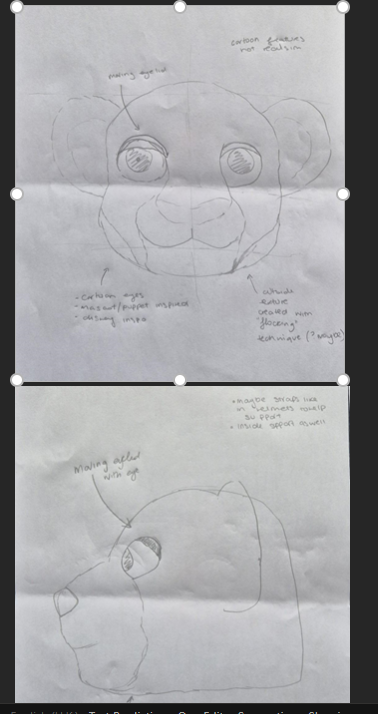 cartoon features
not realism
moving eyelid
- cartoon eyes
- mascot/puppet inspired
- disney inspo
outside
texture
created with
"flocking"
technique (? maybe)
• maybe straps like
in helmets to help
support
• inside support as well
Moving eyelid
with eye